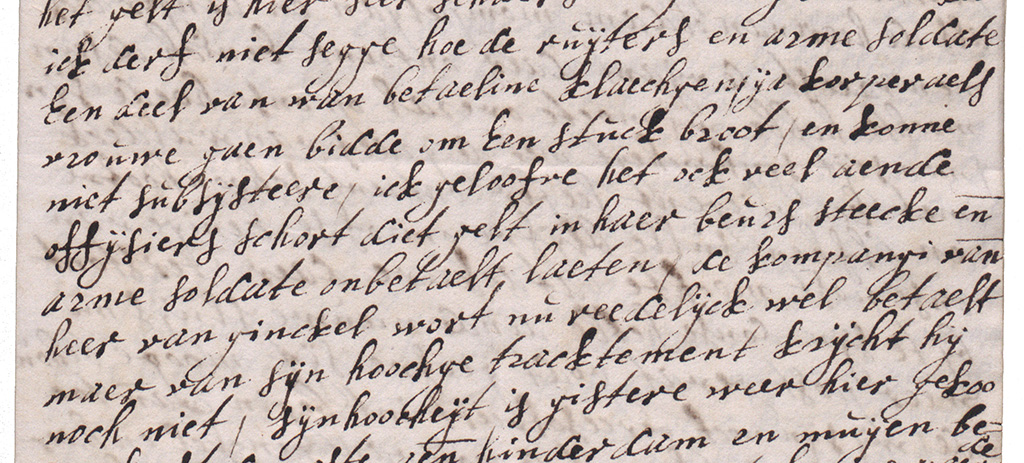 het gelt is hier seer schaers
ick derf niet segge hoe de ruÿters en arme soldate
Een deel van wan betaeline klaechge mÿn korperaels
vrouwe gaen bidde om Een stuck broot / en konne
niet subsÿsteere / ick geloofve het ock veel aende
offÿsiers schort diet gelt in haer beurs steecke en
arme soldate onbetaelt laeten / de kompangi van
heer van ginckel wort nu reedelÿck wel betaelt
maer van sÿn hoochge tracktement krÿcht hÿ
noch niet / sÿn hoocheÿt is gistere weer hier gekoo
kinderdam en muÿen be
de